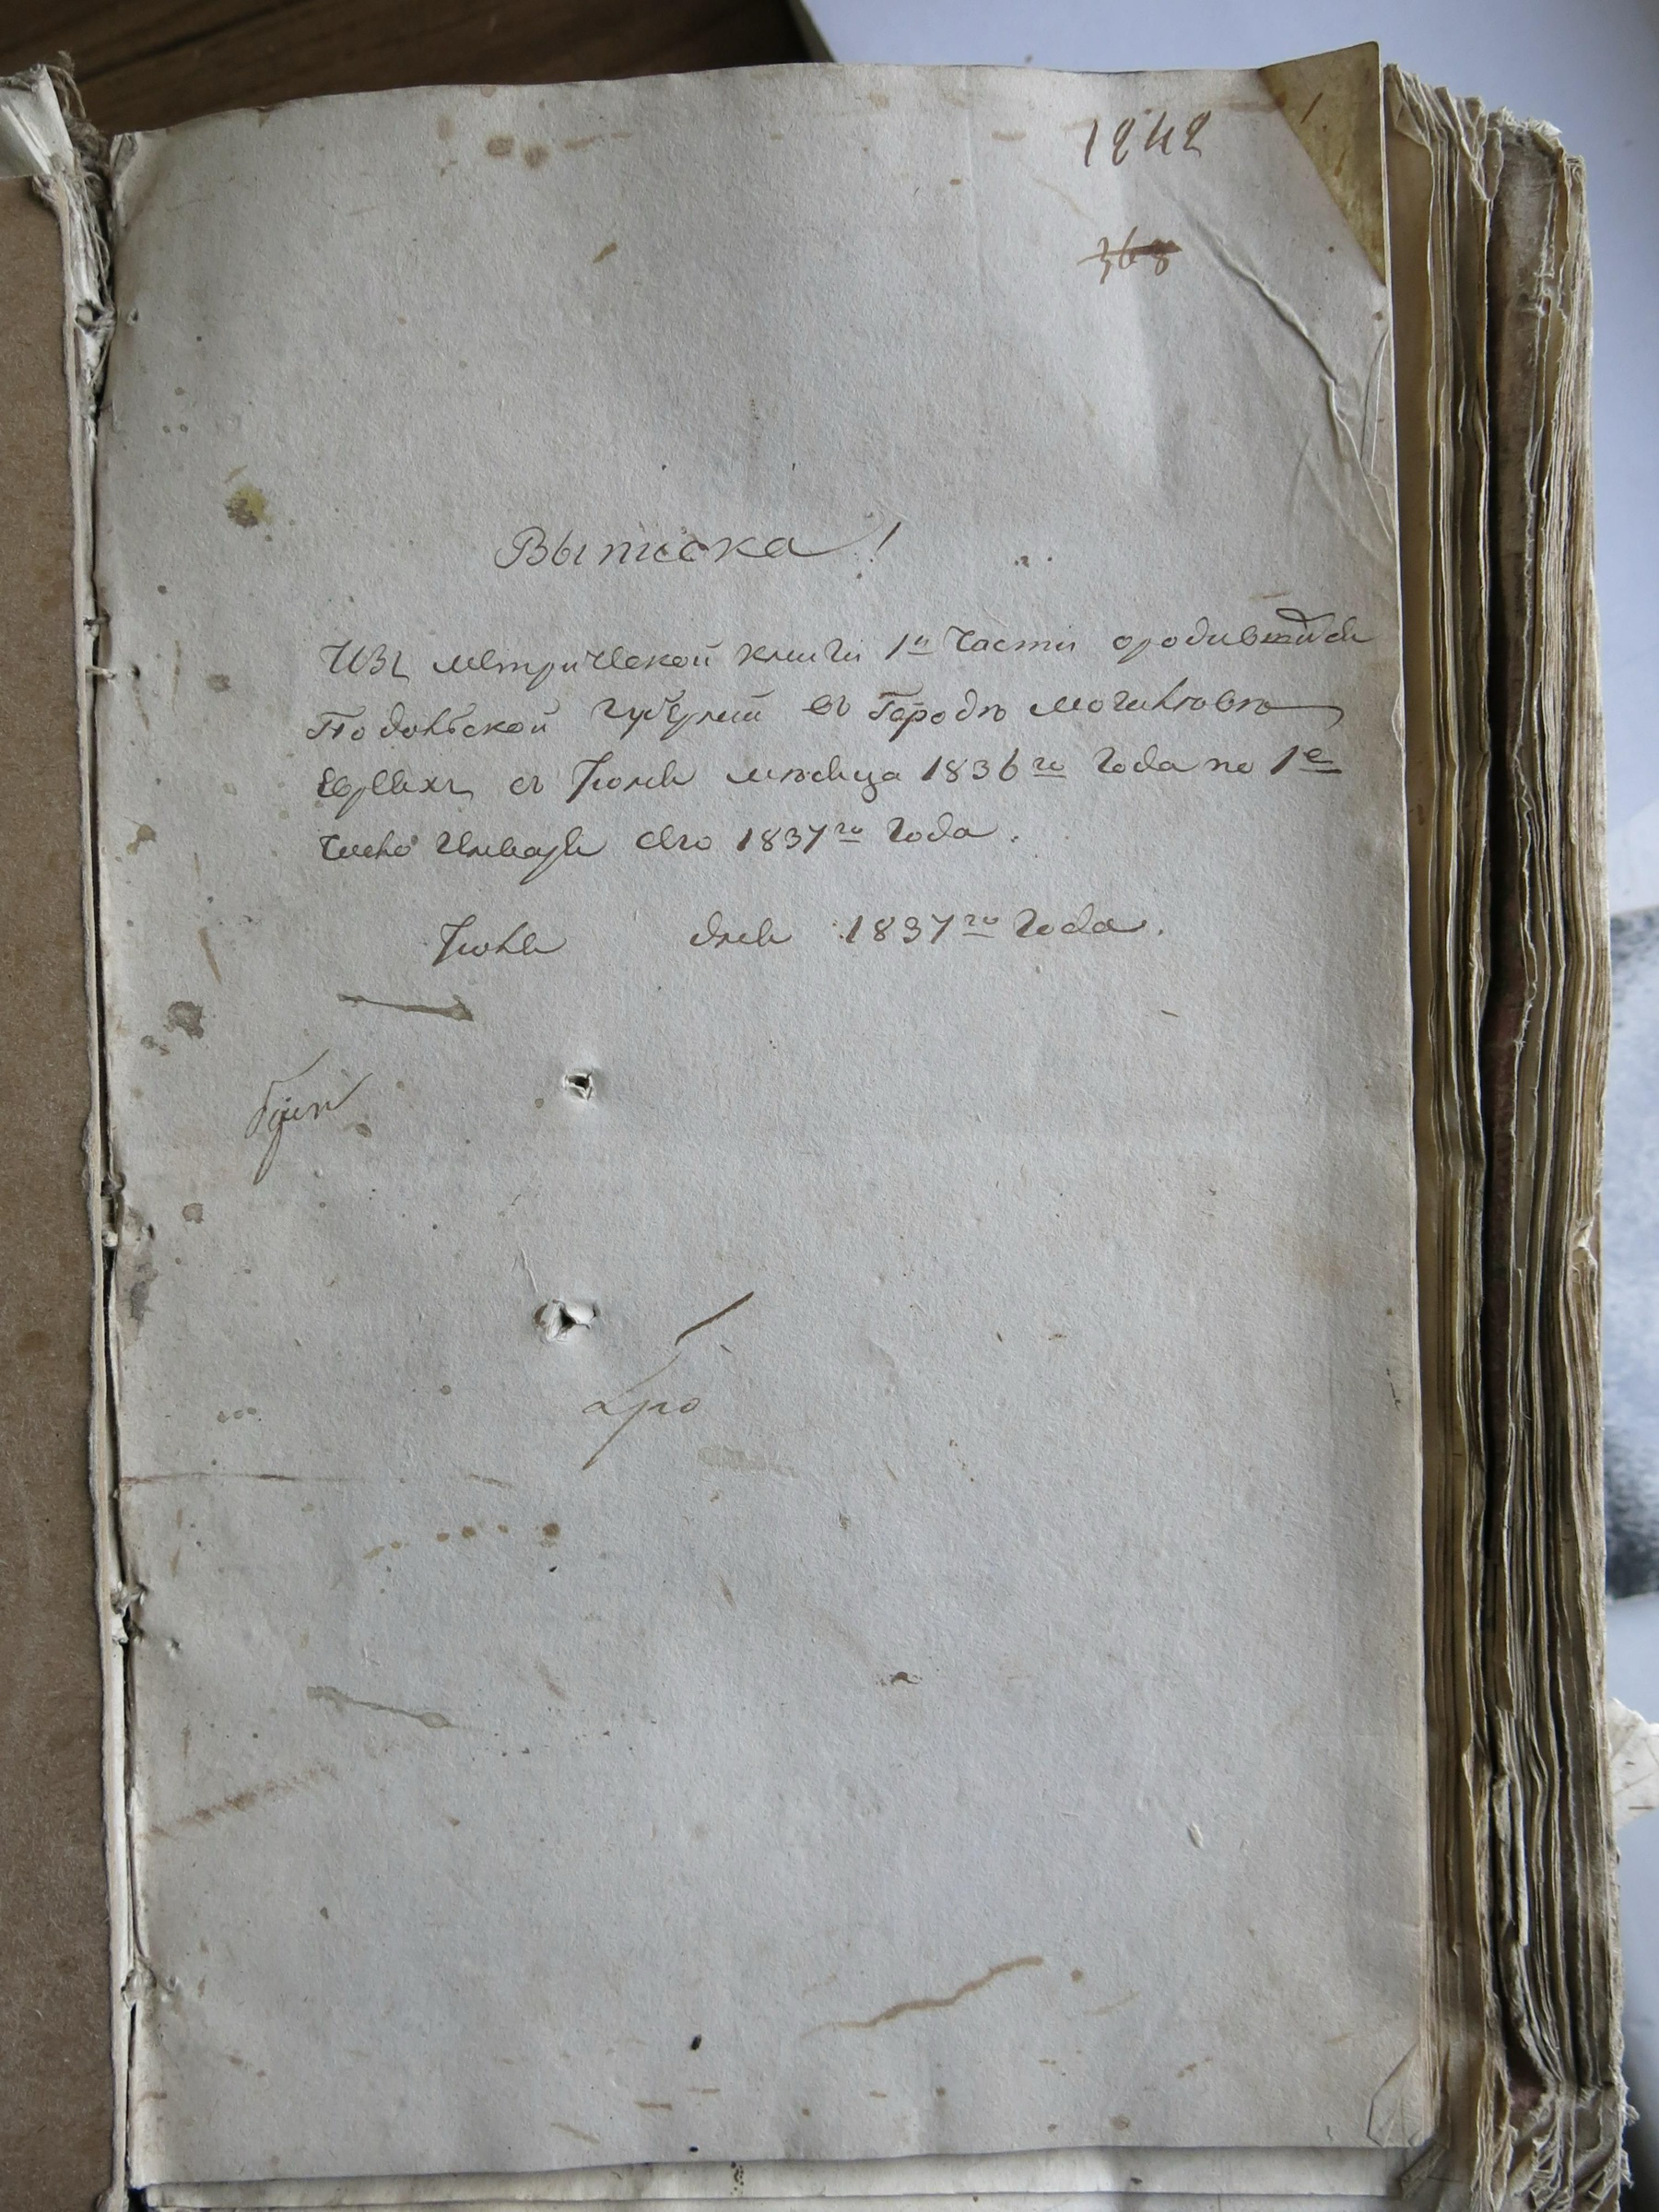 1242
368
Выписка!
Изъ метрической книги 1й Части ородившихся
Подольской губернии въ Городѣ Могилювѣ
Евреяхъ съ Iюля мѣсяца 1836го Года по 1е
Число Января сего 1837го Года.
Iюля дня 1837го Года.